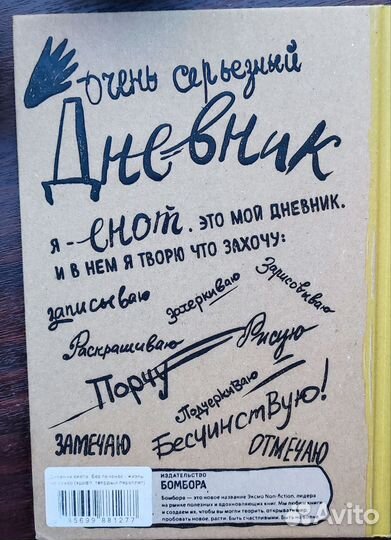 очень серьезный
Дневник
я - енот. это мой дневник.
и в нем я творю что захочу:
записываю
зачеркиваю
Зарисовываю
Раскрашиваю
Рисую
Порчу
Подчеркиваю
Бесчинствую!
замечаю
отмечаю
ИЗДАТЕЛЬСТВО
БОМБОРА
Бомбора – это новое название Эксмо Non-fiction, лидера
на рынке полезных и вдохновляющих книг. Мы любим книги
и создаем их, чтобы вы могли творить, открывать
пробовать новое, расти. Быть счастливыми. Быть
Дневник енота. Без печенек - жизнь
твердый переплет)
45699 881277
Avito